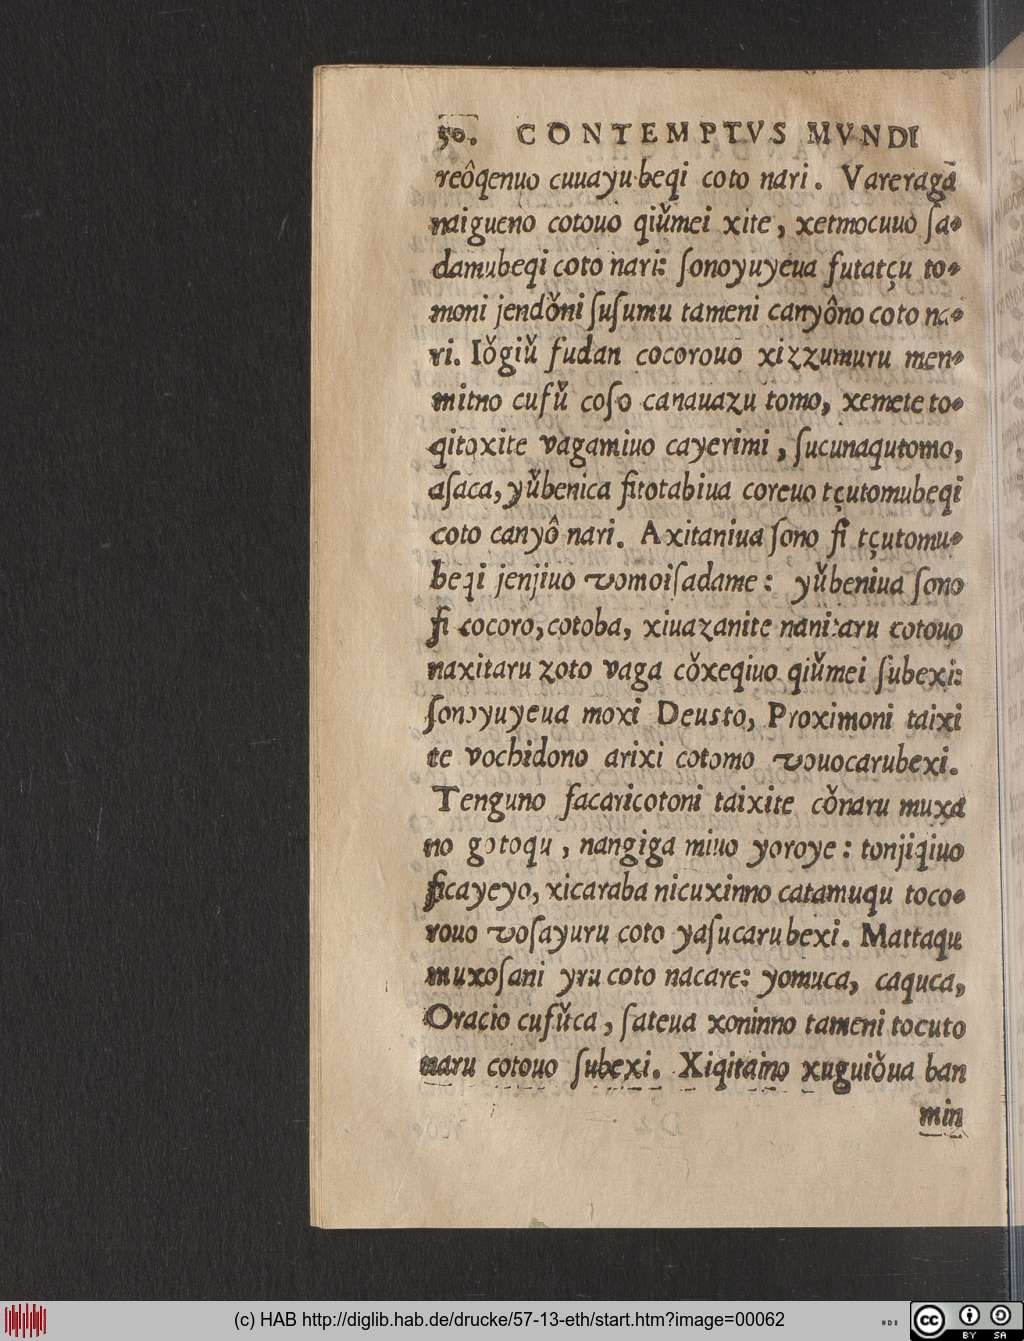 50. CONTEMPTVS MVNDI
reôqenuo cuuayubeqi coto nari. Vareragā
naigueno cotouo qiǔmei xite, xetmocuuo ſa-
damubeqi coto nari: ſonoyuyeua futatçu to-
moni jendǒni ſuſumu tameni canyôno coto na-
ri. Iǒgiǔ fudan cocorouo xizzumuru men-
mitno cufǔ coſo canauazu tomo, xemete to-
qitoxite vagamiuo cayerimi, ſucunaqutomo,
aſaca, yǔbenica fitotabiua coreuo tçutomubeqi
coto canyô nari. Axitaniua ſono fi tçutomu-
beqi jenjiuo vomoiſadame: yǔbeniua ſono
fi cocoro, cotoba, xiuazanite nanitaru cotouo
naxitaru zoto vaga cǒxeqiuo qiǔmei ſubexi:
ſonoyuyeua moxi Deusto, Proximoni taixi
te vochidono arixi cotomo vouocarubexi.
Tenguno facaricotoni taixite cǒnaru muxa
no gotoqu, nangiga miuo yoroye: tonjiqiuo
ficayeyo, xicaraba nicuxinno catamuqu toco-
rouo voſayuru coto yaſucarubexi. Mattaqu
muxoſani yru coto nacare: yomuca, caquca,
Oracio cufǔca, ſateua xoninno tameni tocuto
naru cotouo ſubexi. Xiqitaino xuguiǒua ban
min
(c) HAB http://diglib.hab.de/drucke/57-13-eth/start.htm?image=00062
cc BY SA